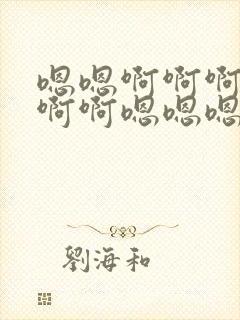 嗯嗯啊啊啊
啊啊嗯嗯嗯
劉海和